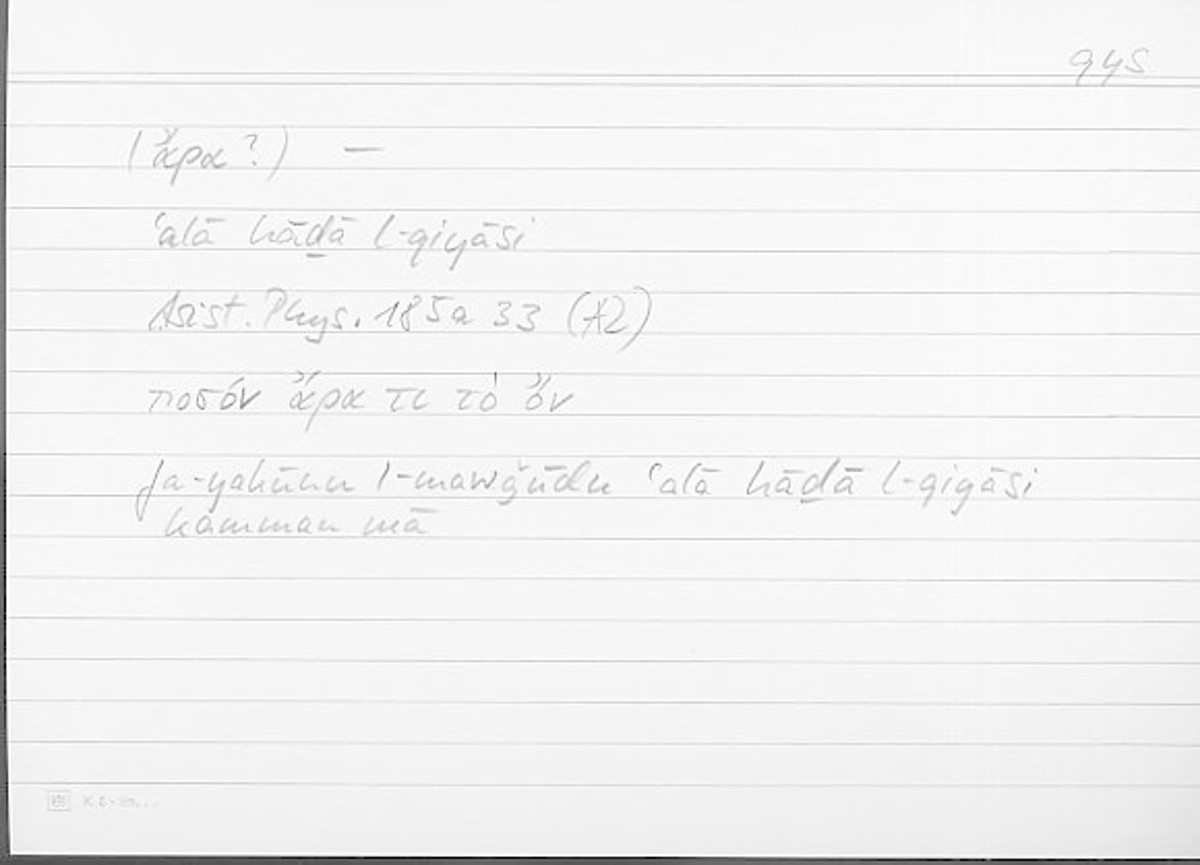 945
(ἄρα?) —
ʿalā hāḏā l-qiyāsi
Arist. Phys. 185a 33 (A2)
ποσόν ἄρα τι τὸ ὄν
fa-yakūnu l-mawǧūdu ʿalā hāḏā l-qiyāsi
kamman mā